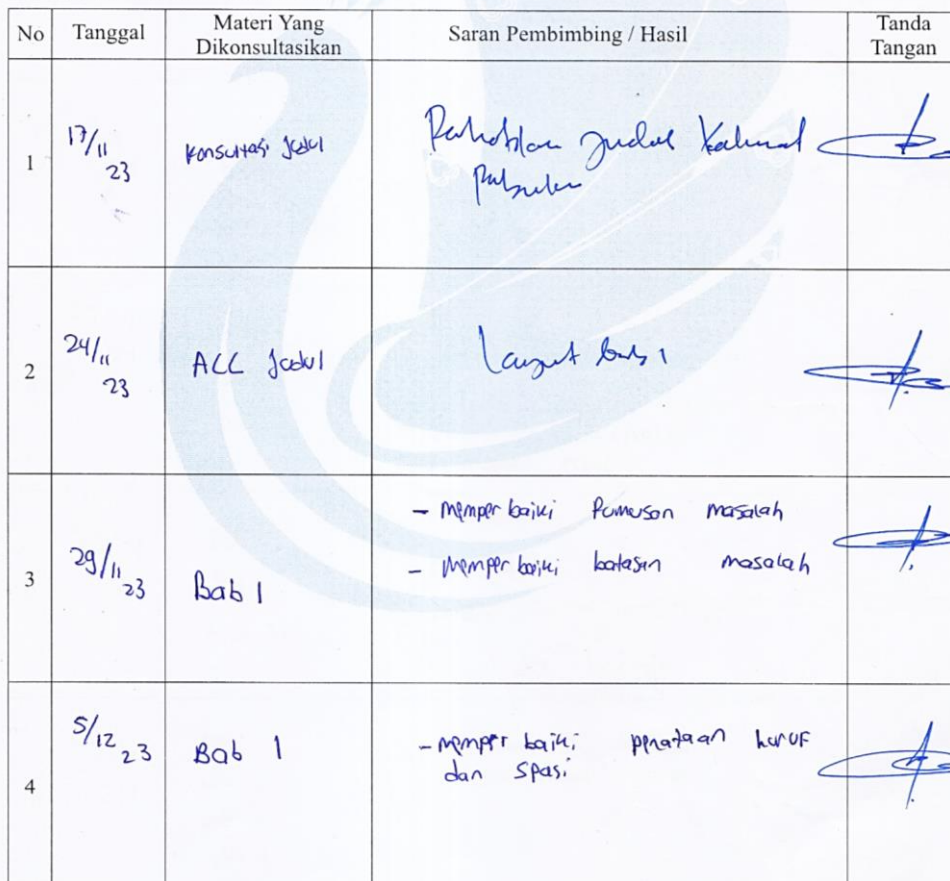 No
Tanggal
Materi Yang
Dikonsultasikan
Saran Pembimbing / Hasil
Tanda
Tangan
1
17/11
23
Konsultasi Judul
Judul
2
24/11
23
ACC Judul
Lanjut bab 1
3
29/11 23
Bab 1
- memperbaiki Rumusan masalah
- Memperbaiki batasan masalah
4
5/12 23
Bab 1
- memperbaiki penataan huruf
dan spasi